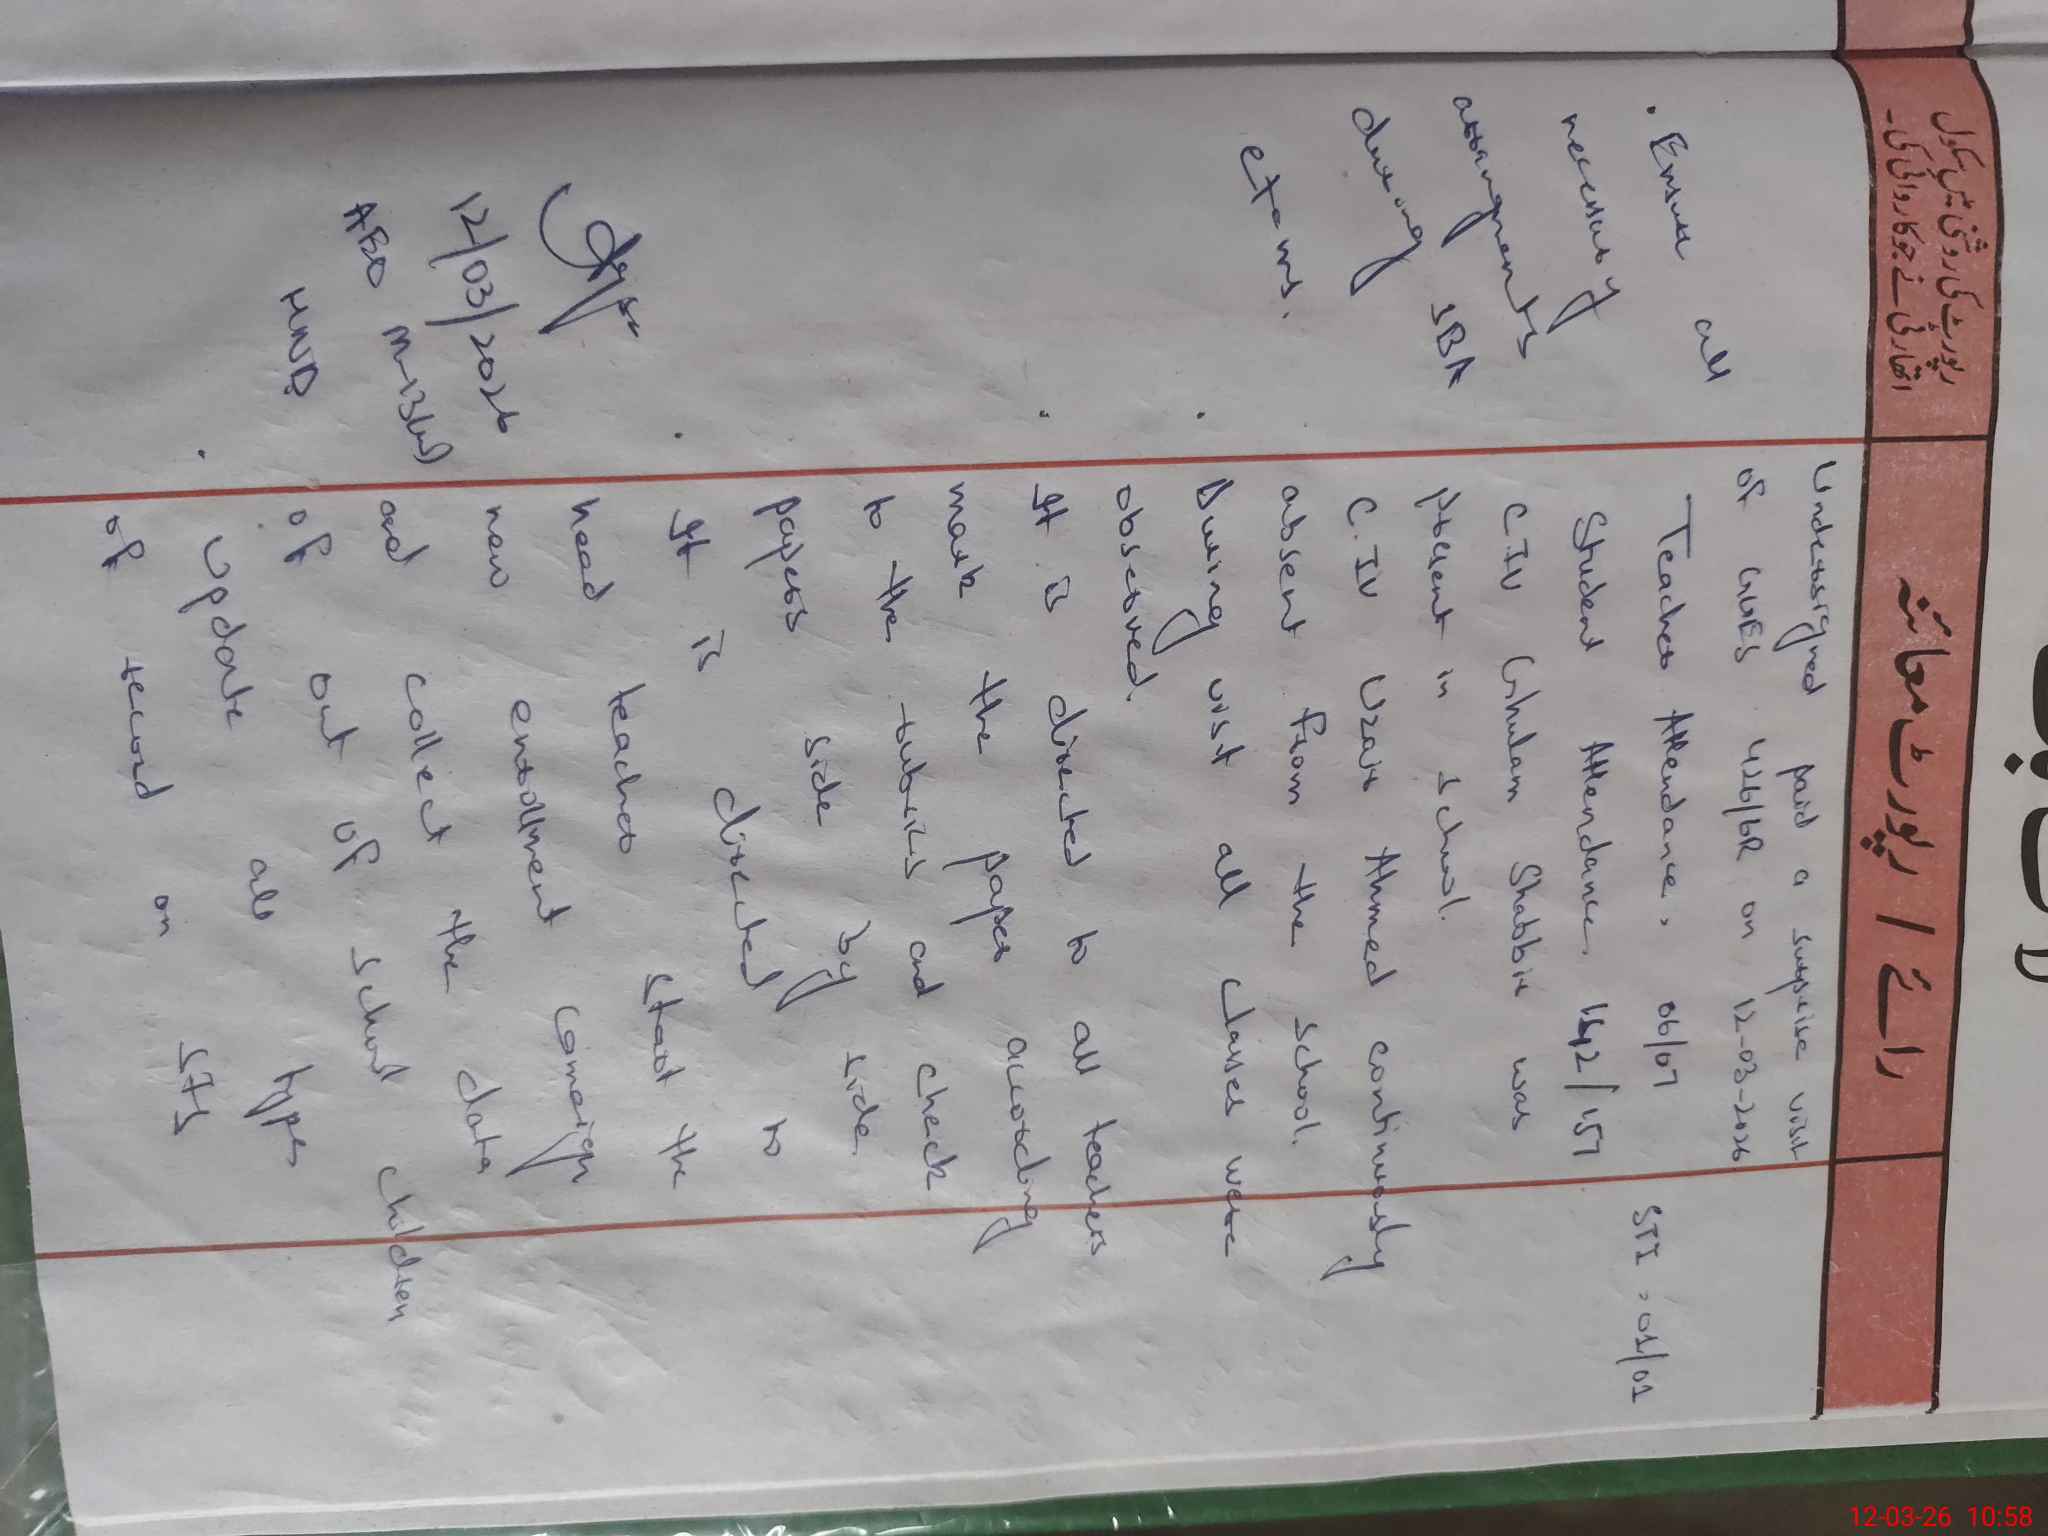 رپورٹ کی روشنی میں سکول
اتھارٹی نے جو کاروائی کی۔
رائے / رپورٹ معائنہ
Undersigned paid a surprise visit
of GGES 426/6R on 12-03-2026
Teacher Attendance, 06/07
STI, 01/01
Student Attendance, 142/157
C.IV Ghulam Shabbir was
present in school.
C.IV Uzair Ahmed continuously
absent from the school.
During visit all classes were
observed.
. It is directed to all teachers
mark the paper according
to the rubrics and check
papers side by side.
. It is directed to
head teacher start the
new enrollment campaign
and collect the data
of out of school children
. update all types
of record on SIS
. Ensure all
necessary
arrangments
during SBA
exams.
12/03/2026
AEO M-13(W)
HND
12-03-26 10:58